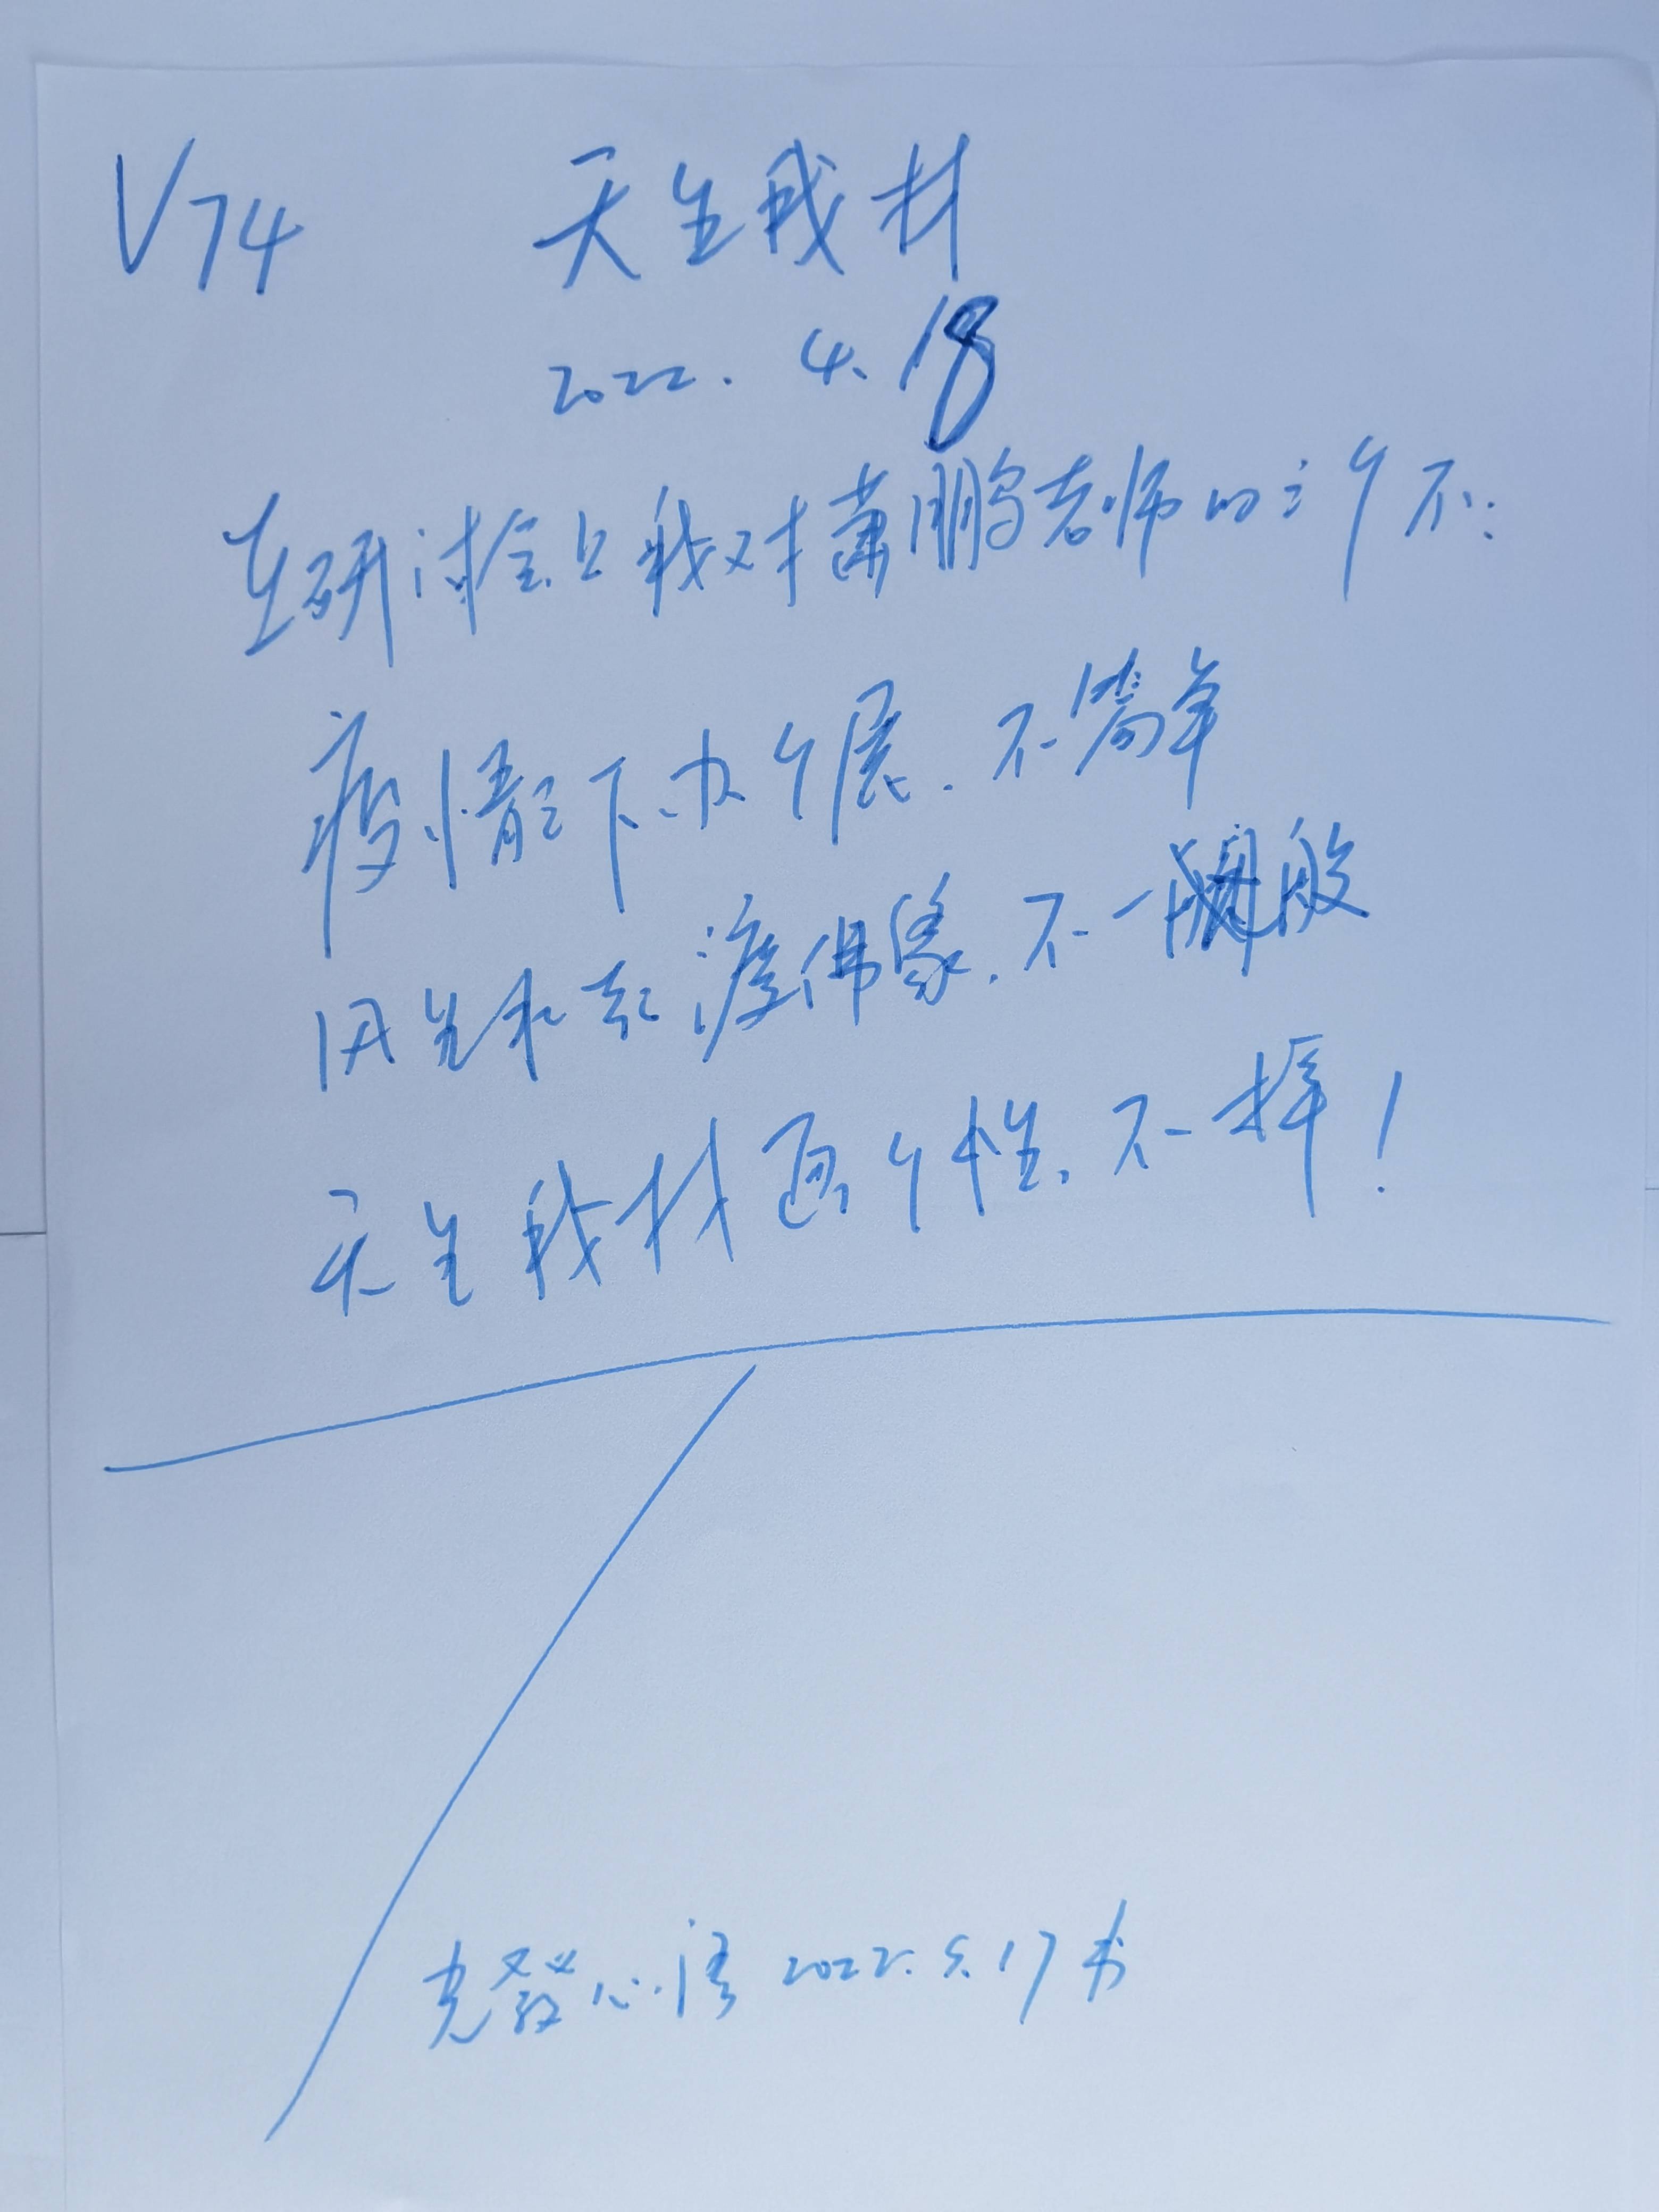 V74 天生我材
2022.4.18
在研讨会上我对萧鹏老师的三个不:
疫情之下办个展.不简单
用生宣去渡佛象.不一般
天生我材画个性.不一样!
心语 2022.5.17书